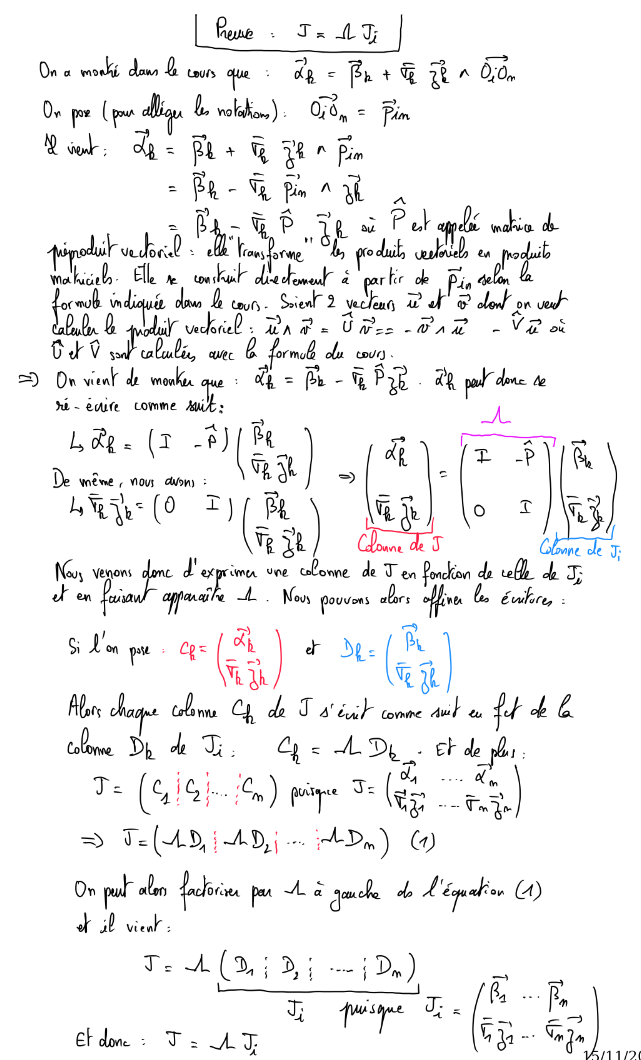 Preuve : J = Λ Jᵢ
On a montré dans le cours que : α⃗ₖ = β⃗ₖ + σ̿ₖ z⃗ₖ ∧ OᵢOₙ⃗
On pose (pour alléger les notations) : OᵢOₙ⃗ = p⃗ᵢₙ
Il vient : α⃗ₖ = β⃗ₖ + σ̿ₖ z⃗ₖ ∧ p⃗ᵢₙ
= β⃗ₖ - σ̿ₖ p⃗ᵢₙ ∧ z⃗ₖ
= β⃗ₖ - σ̿ₖ P̂ z⃗ₖ où P̂ est appelée matrice de
préproduit vectoriel : elle "transforme" les produits vectoriels en produits
matriciels. Elle se construit directement à partir de p⃗ᵢₙ selon la
formule indiquée dans le cours. Soient 2 vecteurs u⃗ et v⃗ dont on veut
calculer le produit vectoriel : u⃗ ∧ v⃗ = Û v⃗ == - v⃗ ∧ u⃗ - V̂ u⃗ où
Û et V̂ sont calculés avec la formule du cours.
=> On vient de montrer que : α⃗ₖ = β⃗ₖ - σ̿ₖ P̂ z⃗ₖ . α⃗ₖ peut donc se
ré-écrire comme suit :
Λ
↳ α⃗ₖ = (I -P̂) (β⃗ₖ
σ̿ₖ z⃗ₖ)
=> (α⃗ₖ
σ̿ₖ z⃗ₖ) = (I -P̂
0 I) (β⃗ₖ
σ̿ₖ z⃗ₖ)
De même, nous avons :
↳ σ̿ₖ z⃗ₖ = (0 I) (β⃗ₖ
σ̿ₖ z⃗ₖ)
Colonne de J
Colonne de Jᵢ
Nous venons donc d'exprimer une colonne de J en fonction de celle de Jᵢ
et en faisant apparaître Λ. Nous pouvons alors affiner les écritures :
Si l'on pose : Cₖ = (α⃗ₖ
σ̿ₖ z⃗ₖ) et Dₖ = (β⃗ₖ
σ̿ₖ z⃗ₖ)
Alors chaque colonne Cₖ de J s'écrit comme suit en fct de la
colonne Dₖ de Jᵢ : Cₖ = Λ Dₖ . Et de plus :
J = (C₁ ¦ C₂ ¦ ... ¦ Cₙ) puisque J = (α⃗₁ .... α⃗ₙ
σ̿₁ z⃗₁ .... σ̿ₙ z⃗ₙ)
=> J = (Λ D₁ ¦ Λ D₂ ¦ ... ¦ Λ Dₙ) (1)
On peut alors factoriser par Λ à gauche ds l'équation (1)
et il vient :
J = Λ (D₁ ¦ D₂ ¦ .... ¦ Dₙ)
Jᵢ puisque Jᵢ = (β⃗₁ ... β⃗ₙ
σ̿₁ z⃗₁ ... σ̿ₙ z⃗ₙ)
Et donc : J = Λ Jᵢ
15/11/20